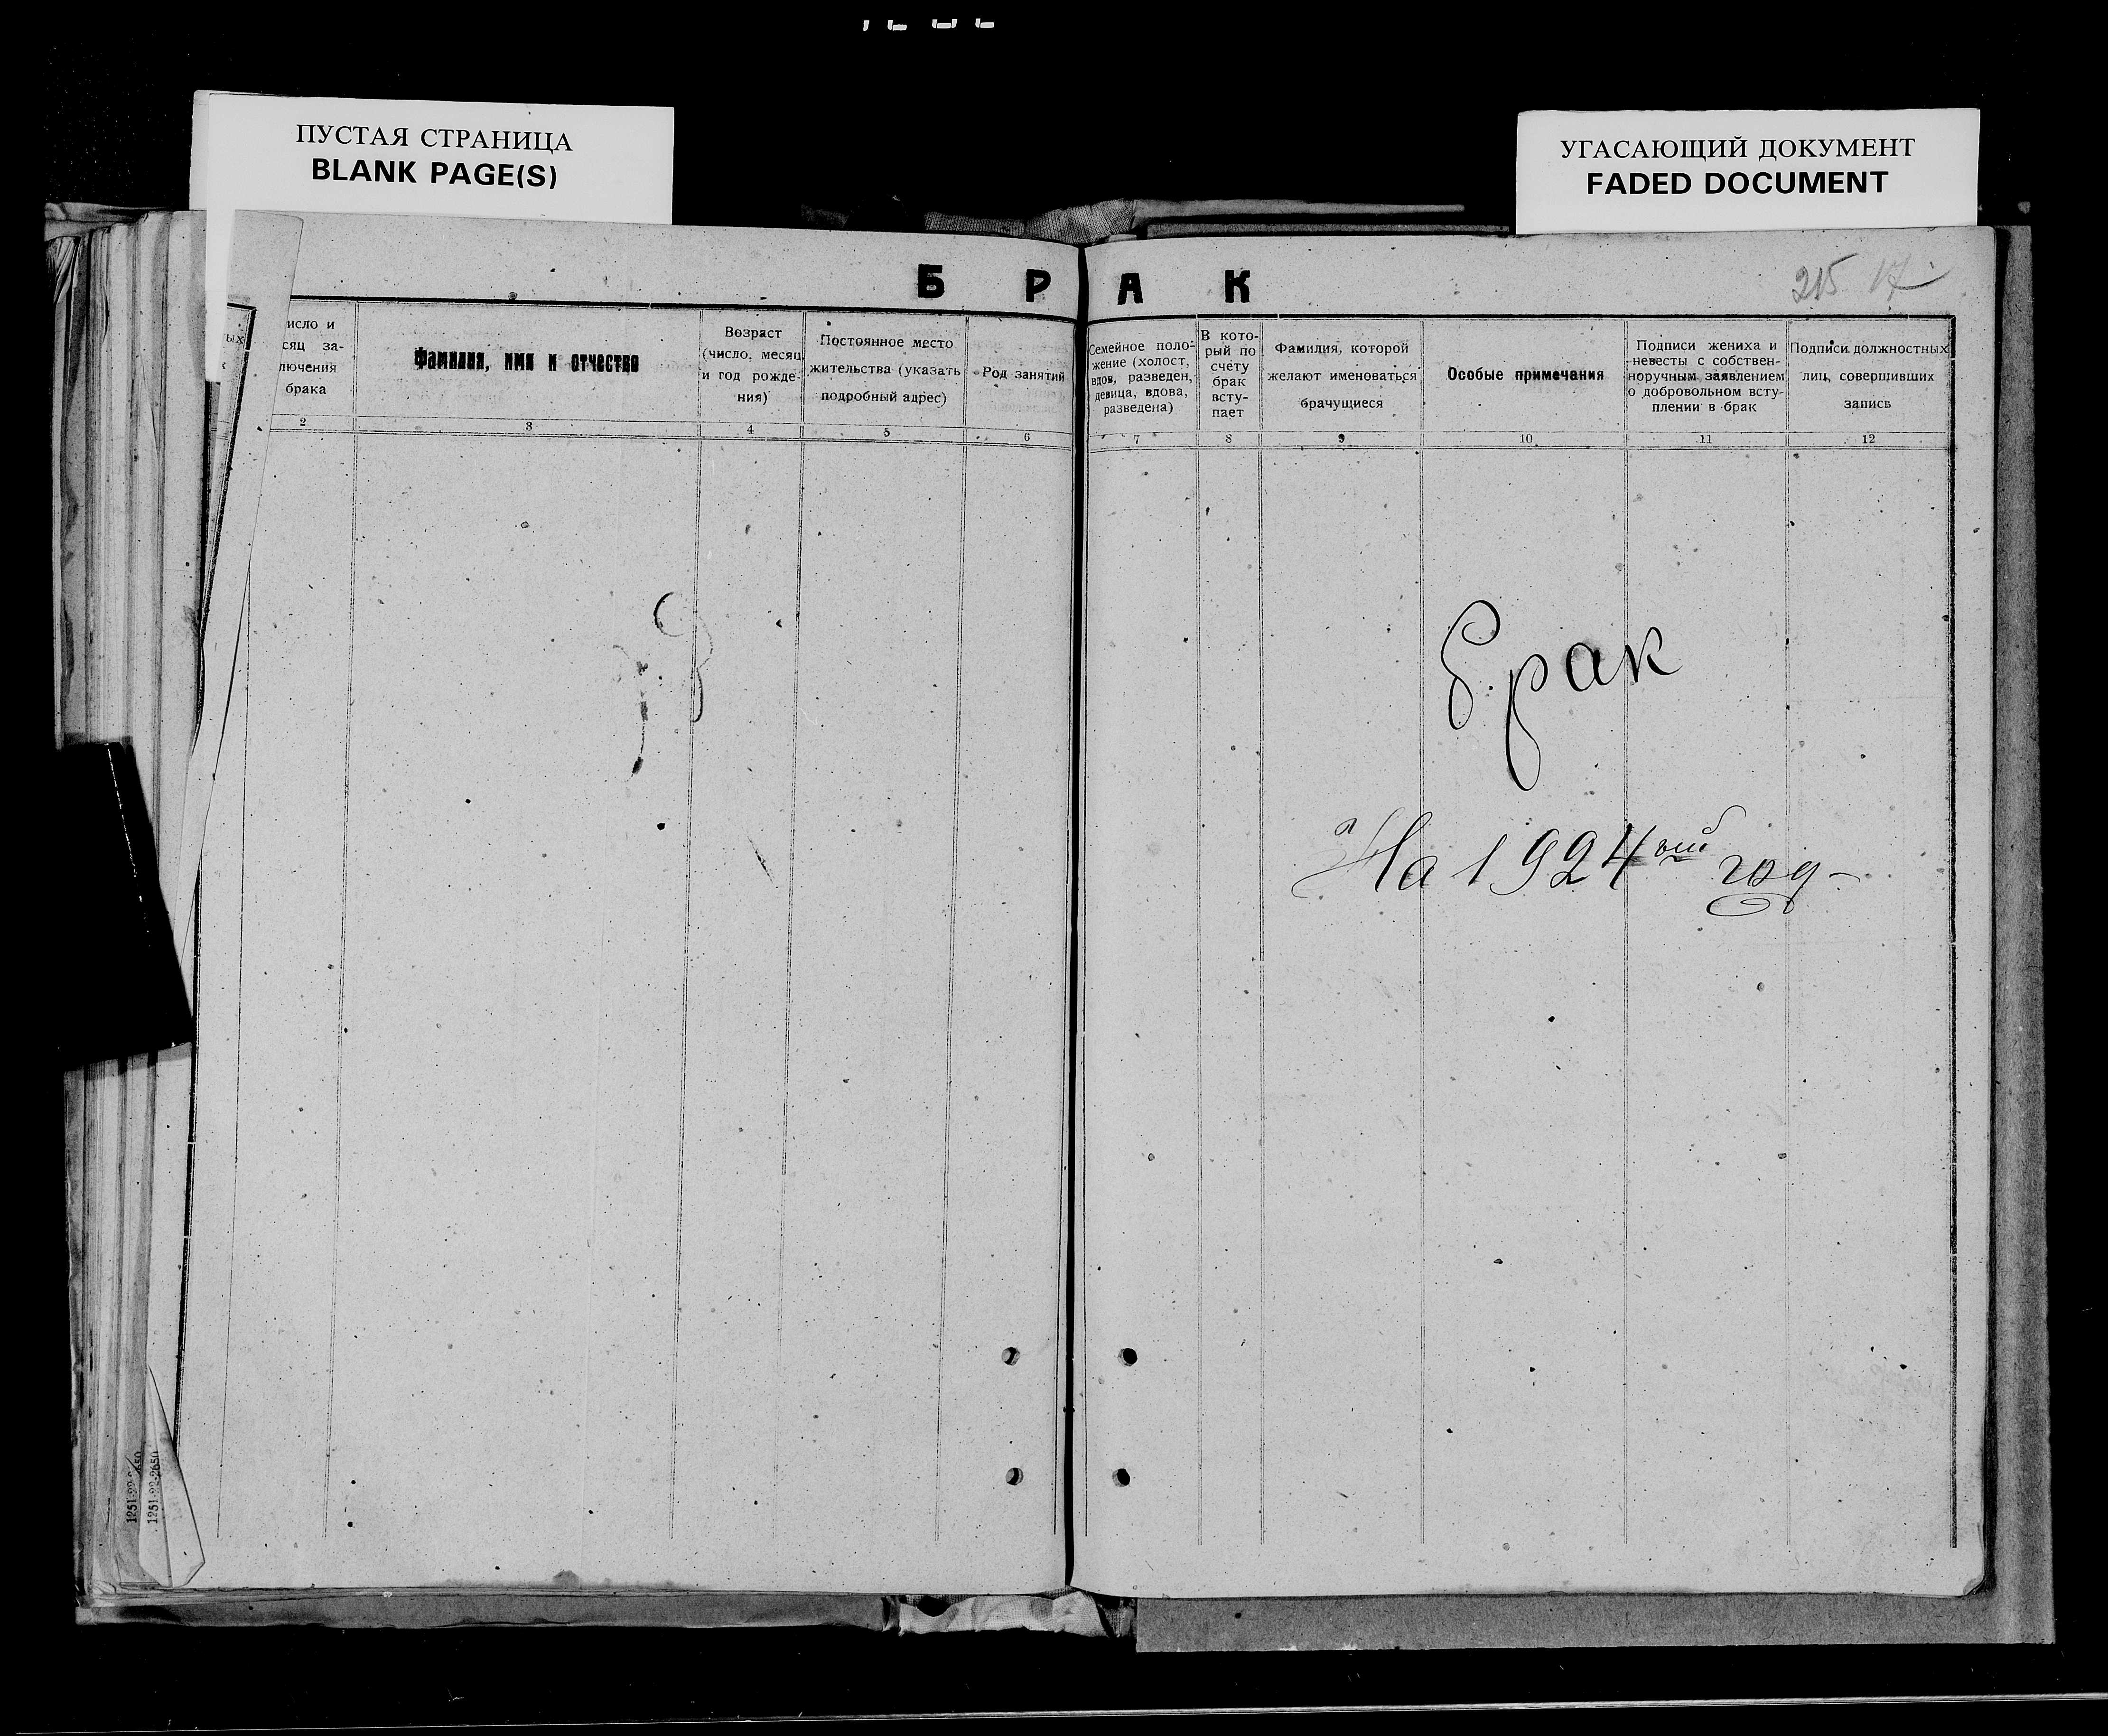 ПУСТАЯ СТРАНИЦА
BLANK PAGE(S)
УГАСАЮЩИЙ ДОКУМЕНТ
FADED DOCUMENT
Б Р А К
215 17
ых
исло и
сяц за-
лючения
брака
Фамилия, имя и отчество
Возраст
(число, месяц
и год рожде-
ния)
Постоянное место
жительства (указать
подробный адрес)
Род занятий
Семейное поло-
жение (холост,
вдов, разведен,
девица, вдова,
разведена)
В кото-
рый по
счету
брак
всту-
пает
Фамилия, которой
желают именоваться
брачущиеся
Особые примечания
Подписи жениха и
невесты с собствен-
норучным заявлением
о добровольном всту-
плении в брак
Подписи должностных
лиц, совершивших
запись
2 3 4 5 6 7 8 9 10 11 12
брак
На 1924 ый год
1251-22-2650